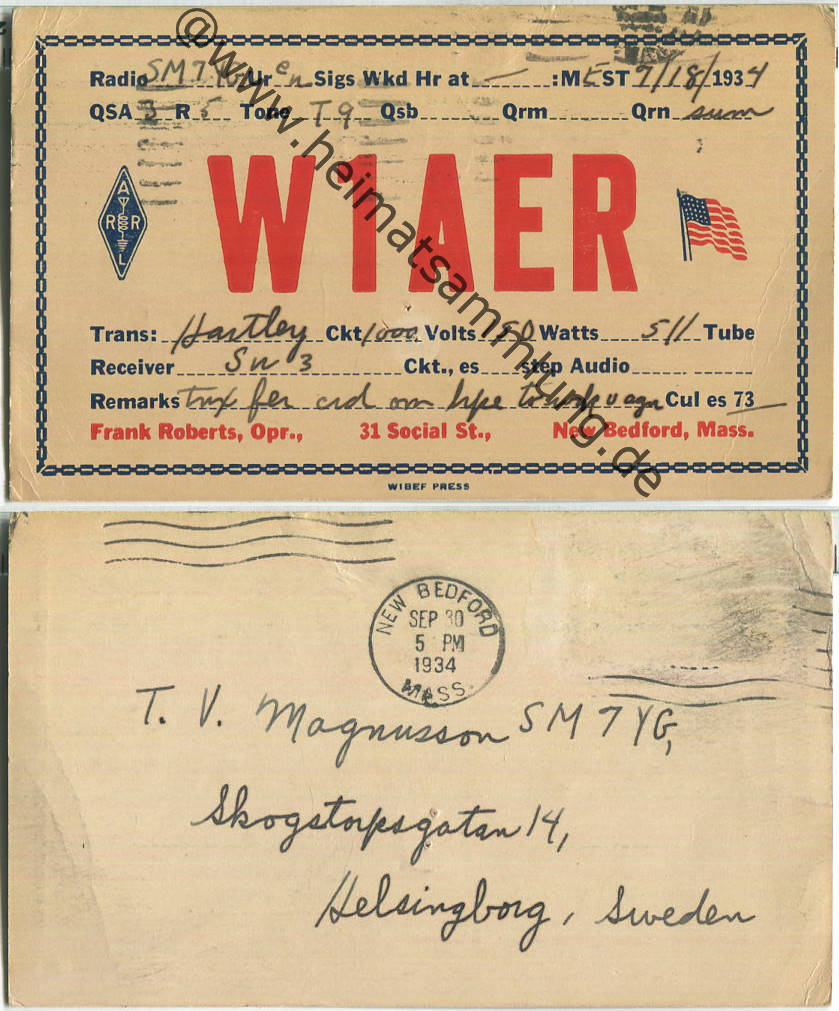 Radio SM7YG Ur en Sigs Wkd Hr at — :M EST 9/18/1934
QSA 3 R 5 Tone T9 Qsb Qrm Qrn sum
W1AER
A
R R
L
Trans: Hartley Ckt 1000 Volts 50 Watts 511 Tube
Receiver SW 3 Ckt., es step Audio
Remarks tnx fer crd om hpe to wrk u agn Cul es 73
Frank Roberts, Opr., 31 Social St., New Bedford, Mass.
W1BEF PRESS
@www.heimatsammlung.de
NEW BEDFORD
SEP 30
5 PM
1934
MASS.
T. V. Magnusson SM7YG,
Skogstorpsgatan 14,
Helsingborg, Sweden